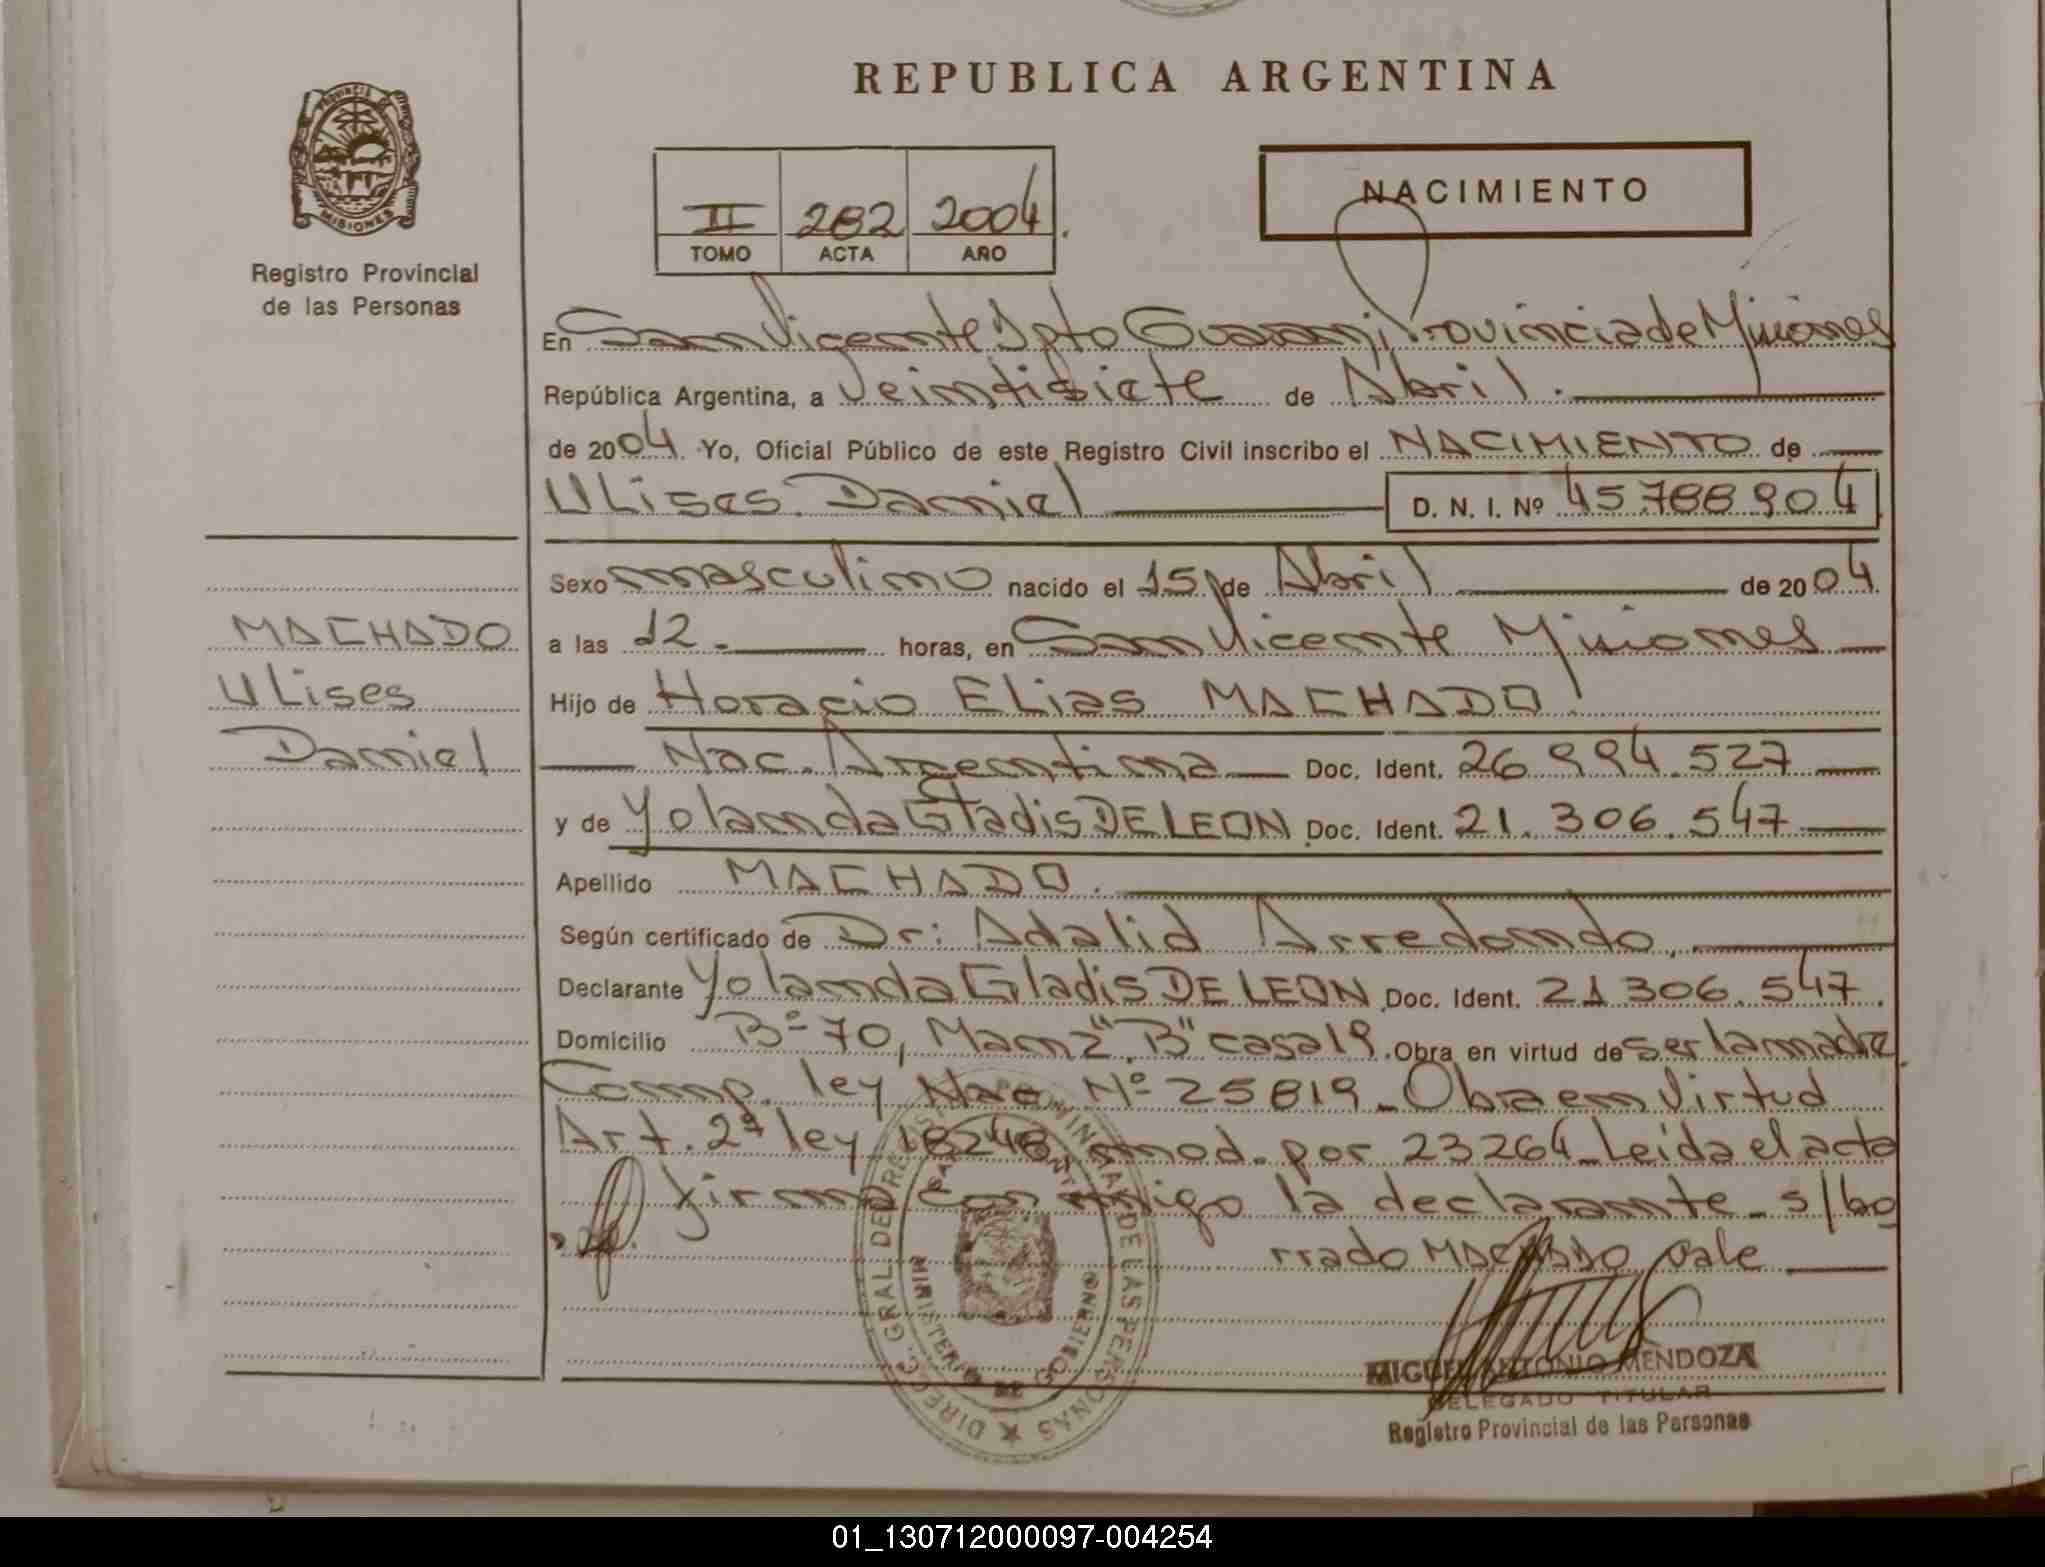 REPUBLICA ARGENTINA
PROVINCIA DE
MISIONES
Registro Provincial
de las Personas
II 282 2004.
TOMO ACTA AÑO
NACIMIENTO
En San Vicente Dpto Guarani, Provincia de Misiones
República Argentina, a veintisiete de Abril.
de 2004. Yo, Oficial Público de este Registro Civil inscribo el NACIMIENTO de
Ulises Daniel D. N. I. Nº 45.788.904
Sexo masculino nacido el 15 de Abril de 2004
a las 12 horas, en San Vicente Misiones
Hijo de Horacio Elias MACHADO
Nac. Argentina Doc. Ident. 26.994.527
y de Yolanda Gladis DE LEON Doc. Ident. 21.306.547
Apellido MACHADO.
Según certificado de Dr: Adalid Arredondo,
Declarante Yolanda Gladis DE LEON Doc. Ident. 21 306.547.
Domicilio Bº 70, Manz "B" casa 19. Obra en virtud de ser la madre
Comp. ley Nac Nº 25819_ Obra en Virtud
Art. 2º ley 18248 mod. por 23264_ Leida el acta
firma con migo la declarante_ s/bo
rrado MACHADO vale
MACHADO
Ulises
Daniel
DIRECC. GRAL DEL REG. PROVINCIAL DE LAS PERSONAS
MINISTERIO DE GOBIERNO
MIGUEL ANTONIO MENDOZA
DELEGADO TITULAR
Registro Provincial de las Personas
01_130712000097-004254